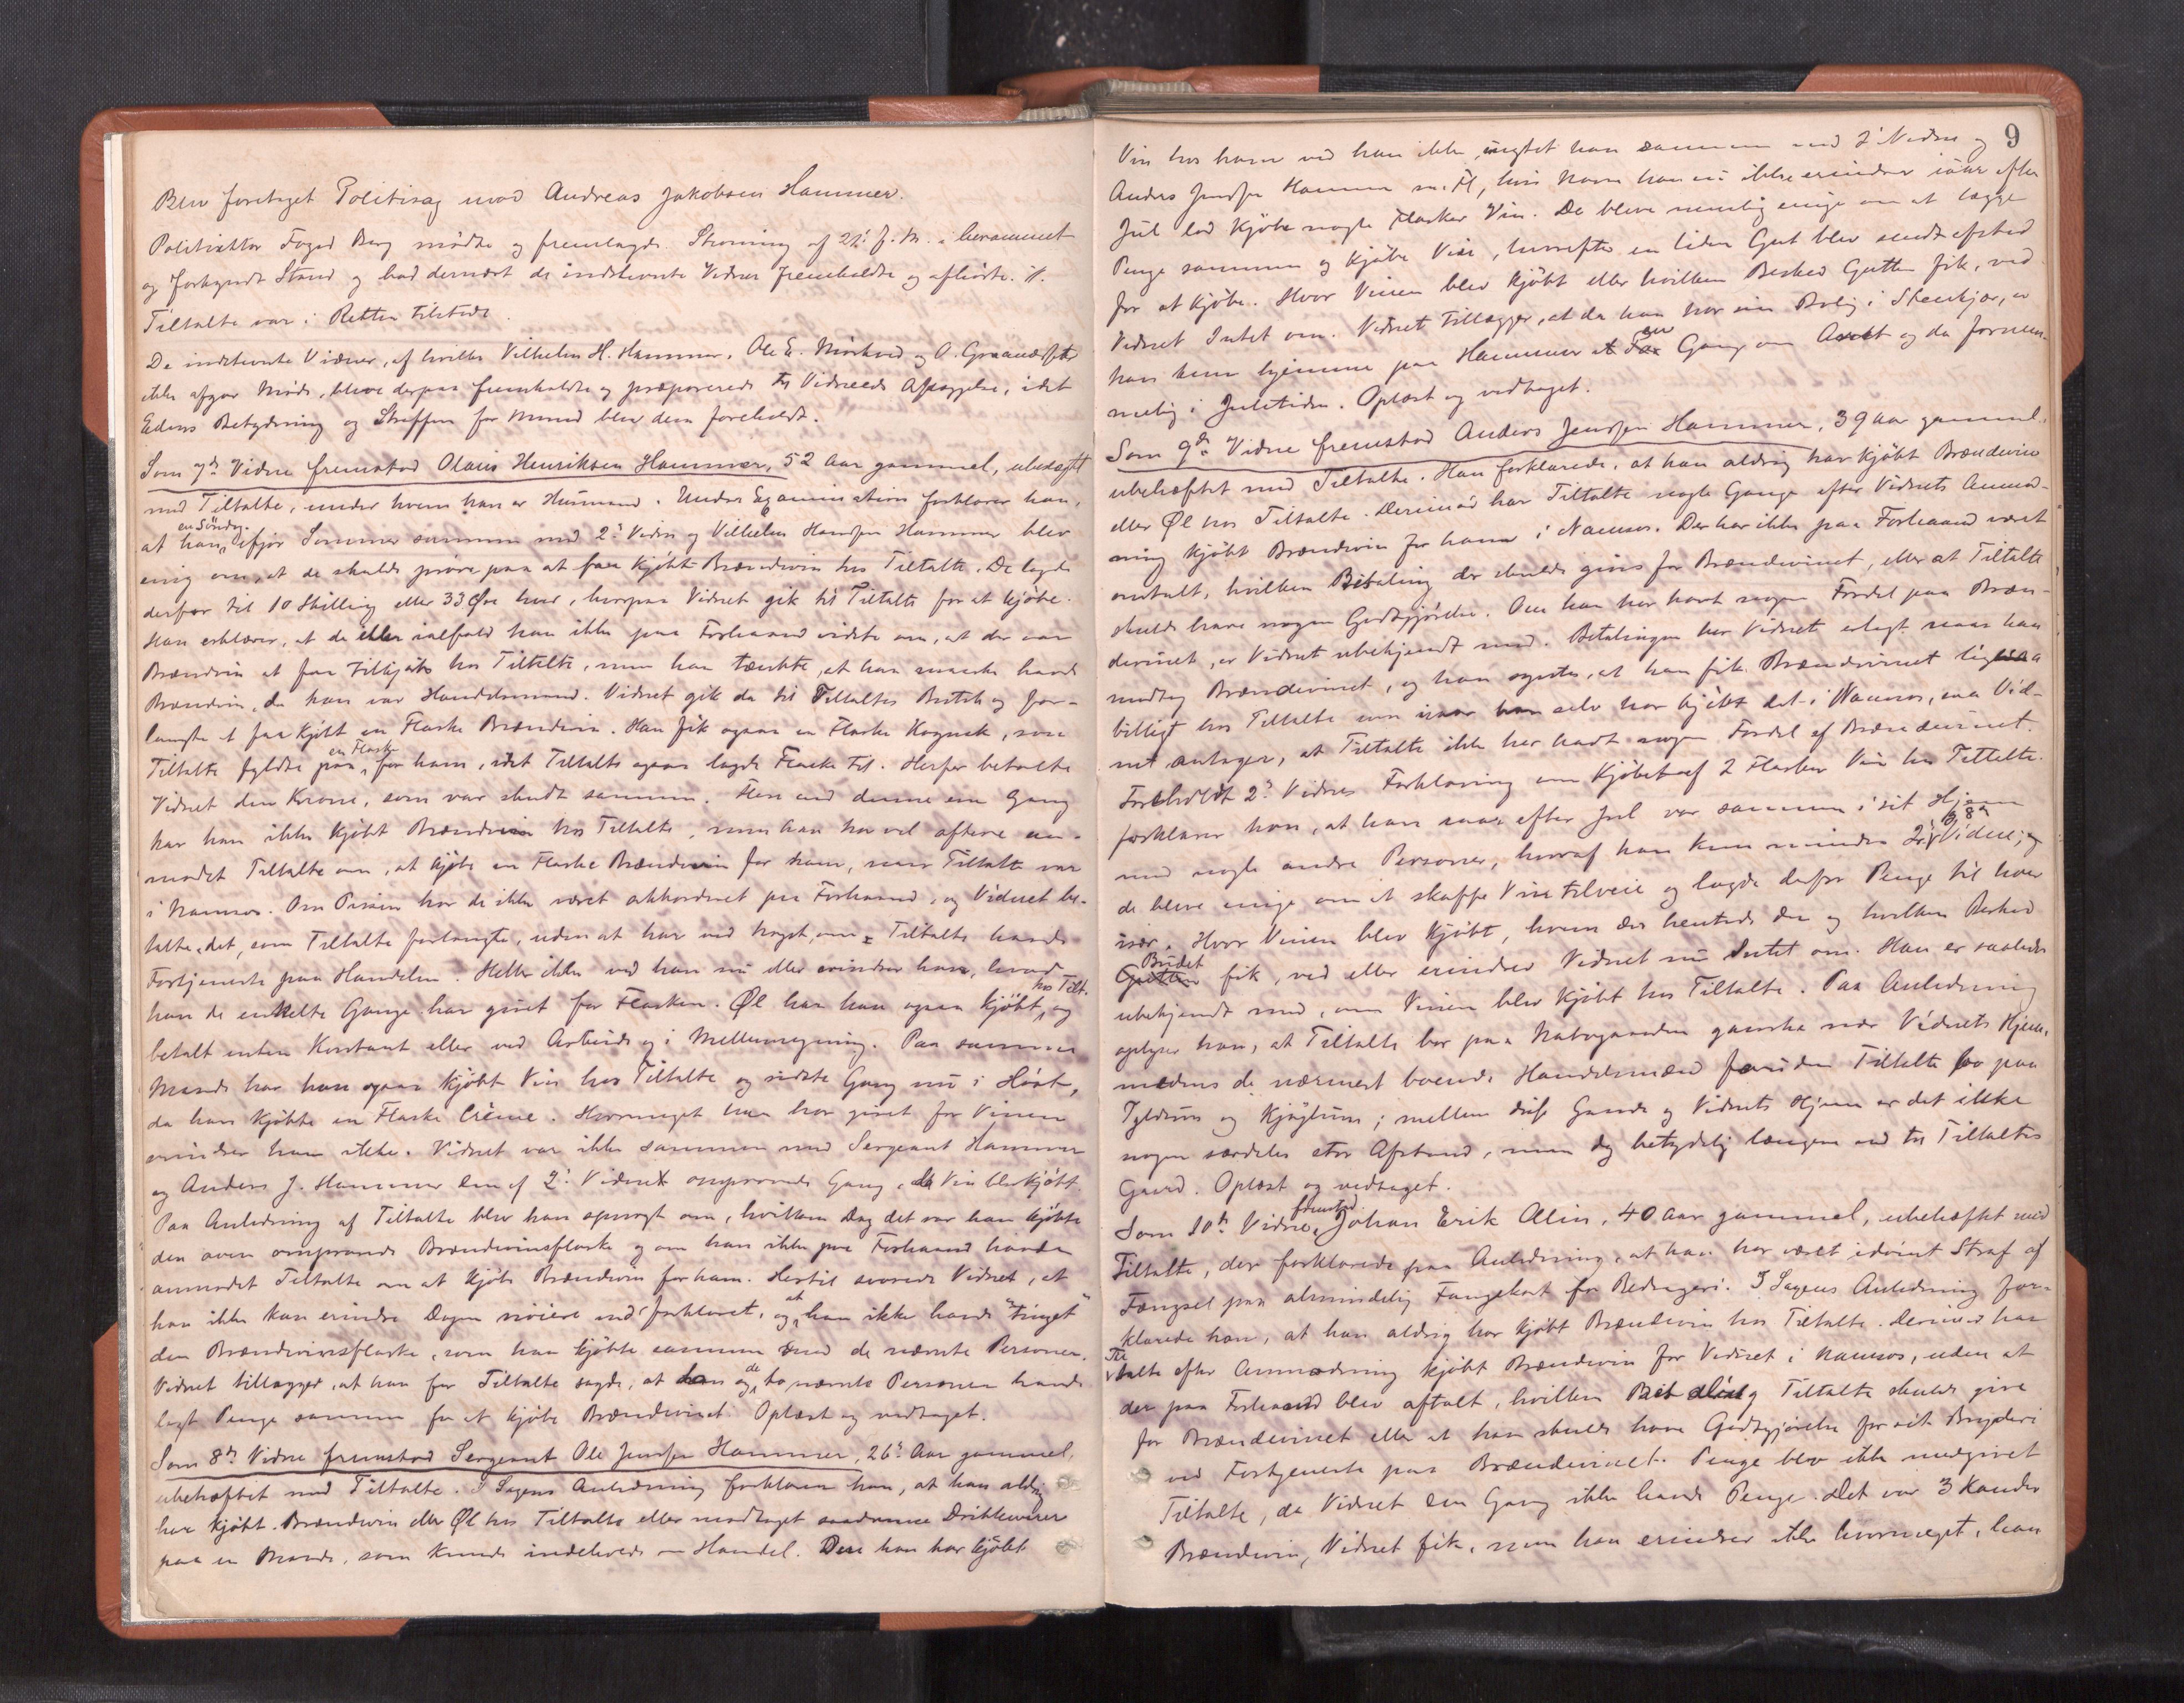 Blev foretaget Politisag mod Andreas Jakobsen Hammer.
Politiaktor Foged Berg mødte og fremlagde Stevning af 21. f. M. i berammet
og forkyndt Stand og bad dernæst de indstevnte Vidner fremkaldte og afhørte.
Tiltalte var i Retten tilstede.
De indstevnte Vidner, af hvilke Vilhelm H. Hammer, Ole E. Mørkved og O.
ikke afgav Møde, bleve derpaa fremkaldte og præparerede til Vidneeds Aflæggelse, idet
Edens Betydning og Straffen for Mened blev dem foreholdt.
Som 7de Vidne fremstod Olaus Henriksen Hammer, 52 Aar gammel, ubeslægtet
med Tiltalte, under hvem han er Husmand. Under Examination forklarer han,
at han en Søndag ifjor Sommer sammen med 2. Vidne og Vilhelm Hansen Hammer blev
enig om, at de skulde prøve paa at faa kjøbt Brændevin hos Tiltalte. De lagde
derfor til 10 Skilling eller 33 Øre hver, hvorpaa Vidnet gik til Tiltalte for at kjøbe.
Han erklærer, at de eller ialfald han ikke paa Forhaand vidste om, at der var
Brændevin at faa tilkjøbs hos Tiltalte, men han tænkte, at han maaske havde
Brændevin, da han var Handelsmand. Vidnet gik da til Tiltaltes Butik og for-
langte at faa kjøbt en Flaske Brændevin. Han fik ogsaa en Flaske Kognak, som
Tiltalte fyldte paa en Flaske for ham, idet Tiltalte ogsaa lagde Flaske til. Herfor betalte
Vidnet den Krone, som var skudt sammen. Mere end denne ene Gang
har han ikke kjøbt Brændevin hos Tiltalte, men han har vel oftere an-
modet Tiltalte om, at kjøbe en Flaske Brændevin for ham, naar Tiltalte var
i Namsos. Om Prisen har de ikke været akkorderet paa Forhaand, og Vidnet be-
talte det, som Tiltalte forlangte, uden at han ved noget, om Tiltalte havde
Fortjeneste paa Handelen. Heller ikke ved han nu eller erindrer han, hvad
han de enkelte Gange har givet for Flasken. Øl har han ogsaa kjøbt hos Tilt. og
betalt enten Kontant eller ved Arbeide og i Mellemregning. Paa samme
Maade har han ogsaa kjøbt Vin hos Tiltalte og sidste Gang nu i Høst,
da han kjøbte en Flaske Crême. Hvormeget han har givet for Vinen
erindrer han ikke. Vidnet var ikke sammen med Sergeant Hammer
og Anders J. Hammer den af 2. Vidne omprovede Gang, da Vin blev kjøbt.
Paa Anledning af Tiltalte blev han spurgt om, hvilken Dag det var han kjøbte
den oven omprovede Brændevinsflaske og om han ikke paa Forhaand havde
anmodet Tiltalte om at kjøbe Brændevin for ham. Hertil svarede Vidnet, at
han ikke kan erindre Dagen nøiere end forklaret, og at han ikke havde "tinget"
den Brændevinsflaske, som han kjøbte sammen med de nævnte Personer.
Vidnet tillægger, at han for Tiltalte sagde, at han og de to nævnte Personer havde
lagt Penge sammen for at kjøbe Brændevinet. Oplæst og vedtaget.
Som 8de Vidne fremstod Sergeant Ole Jensen Hammer, 26 Aar gammel,
ubehæftet med Tiltalte. I Sagens Anledning forklarer han, at han aldrig
har kjøbt Brændevin eller Øl hos Tiltalte eller modtaget saadanne Drikkevarer
paa en Maade, som kunde indeholde en Handel. Den han har kjøbt
9
Vin hos ham ved han ikke, vigtet han sammen med 2. Vidne og
Anders Jensen Hammer m. Fl., hvis Navn han nu ikke erindrer iaar efter
Jul lod kjøbe nogle Flasker Vin. De bleve nemlig enige om at lægge
Penge sammen og kjøbe Vin, hvorefter en liden Gut blev sendt afsted
for at kjøbe. Hvor Vinen blev kjøbt eller hvilken Besked Gutten fik, ved
Vidnet Intet om. Vidnet tillægger, at da han har sin Bolig i Stenkjær, er
han kun hjemme paa Hammer en Gang om Aaret og da fornem-
melig i Juletiden. Oplæst og vedtaget.
Som 9de Vidne fremstod Anders Jensen Hammer, 39 Aar gammel,
ubehæftet med Tiltalte. Han forklarede, at han aldrig har kjøbt Brændevin
eller Øl hos Tiltalte. Derimod har Tiltalte nogle Gange efter Vidnets Anmod-
ning kjøbt Brændevin for ham i Namsos. Der har ikke paa Forhaand været
omtalt, hvilken Betaling der skulde gives for Brændevinet, eller at Tiltalte
skulde have nogen Godtgjørelse. Om han har havt nogen Fordel paa Bræn-
devinet, er Vidnet ubekjendt med. Betalingen har Vidnet erlagt naar han
modtog Brændevinet, og han syntes, at han fik Brændevinet ligesaa
billigt hos Tiltalte som naar han selv har kjøbt det i Namsos, saa Vid-
net antager, at Tiltalte ikke har havt nogen Fordel af Brændevinet.
Foreholdt 2. Vidnes Forklaring om Kjøbet af 2 Flasker Vin hos Tiltalte
forklarer han, at han iaar efter Jul var sammen i sit Hjem
med nogle andre Personer, hvoraf han kun mindes 2. & 8. Vidne, og
de bleve enige om at skaffe Vin tilveie og lagde derfor Penge til hver
især. Hvor Vinen blev kjøbt, hvem der hentede den og hvilken Besked
Budet fik, ved eller erindrer Vidnet nu Intet om. Han er saaledes
ubekjendt med, om Vinen blev kjøbt hos Tiltalte. Paa Anledning
oplyser han, at Tiltalte bor paa Nabogaarden ganske nær Vidnets Hjem,
medens de nærmest boende Handelsmænd foruden Tiltalte bo paa
Tyldum og Kjøglum; mellem disse Gaarde og Vidnets Hjem er det ikke
nogen særdeles stor Afstand, men dog betydelig længere end til Tiltaltes
Gaard. Oplæst og vedtaget.
Som 10de Vidne fremstod Johan Erik Alin, 40 Aar gammel, ubehæftet med
Tiltalte, der forklarede paa Anledning, at han har været idømt Straf af
Fængsel paa almindelig Fangekost for Bedrageri. I Sagens Anledning for-
klarede han, at han aldrig har kjøbt Brændevin hos Tiltalte. Derimod har
Tiltalte efter Anmodning kjøbt Brændevin for Vidnet i Namsos, uden at
der paa Forhaand blev aftalt, hvilken Betaling Tiltalte skulde give
for Brændevinet eller at han skulde have Godtgjørelse for sit Bryderi
ved Fortjeneste paa Brændevinet. Penge blev ikke medgivet
Tiltalte, da Vidnet den Gang ikke havde Penge. Det var 3 Kander
Brændevin, Vidnet fik, men han erindrer ikke hvormeget, han